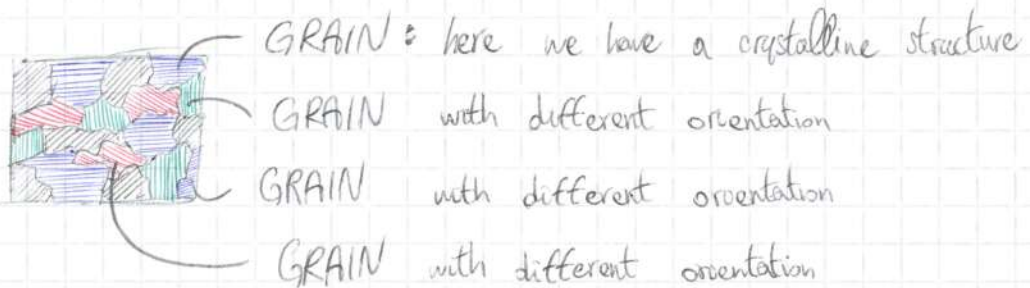 GRAIN: here we have a crystalline structure
GRAIN with different orientation
GRAIN with different orientation
GRAIN with different orientation